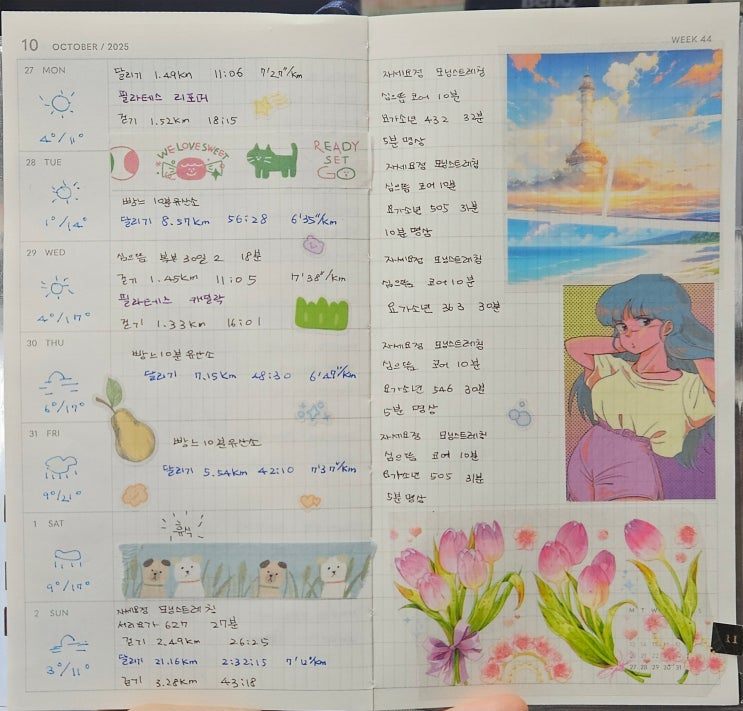 10 OCTOBER / 2025
27 MON
4°/11°
달리기 1.49km 11:06 7'27"/km
필라테스 리포머
걷기 1.52km 18:15
WE LOVE SWEET
READY
SET
GO
28 TUE
1°/14°
빵느 10분유산소
달리기 8.57km 56:28 6'35"/km
29 WED
4°/17°
심으뜸 복부 30일 2 18분
걷기 1.45km 11:05 7'38"/km
필라테스 캐딜락
걷기 1.33km 16:01
30 THU
6°/17°
빵느 10분유산소
달리기 7.15km 48:30 6'47"/km
31 FRI
9°/21°
빵느 10분유산소
달리기 5.54km 42:10 7'37"/km
1 SAT
9°/17°
휴식
2 SUN
3°/11°
자세요정 모닝스트레칭
서리요가 627 27분
걷기 2.49km 26:25
달리기 21.16km 2:32:15 7'12"/km
걷기 3.28km 43:18
WEEK 44
자세요정 모닝스트레칭
심으뜸 코어 10분
요가소년 432 32분
5분 명상
자세요정 모닝스트레칭
심으뜸 코어 10분
요가소년 505 31분
10분 명상
자세요정 모닝스트레칭
심으뜸 코어 10분
요가소년 363 30분
자세요정 모닝스트레칭
심으뜸 코어 10분
요가소년 546 30분
5분 명상
자세요정 모닝스트레칭
심으뜸 코어 10분
요가소년 505 31분
5분 명상
M T W T F S S
27 28 29 30 31
11